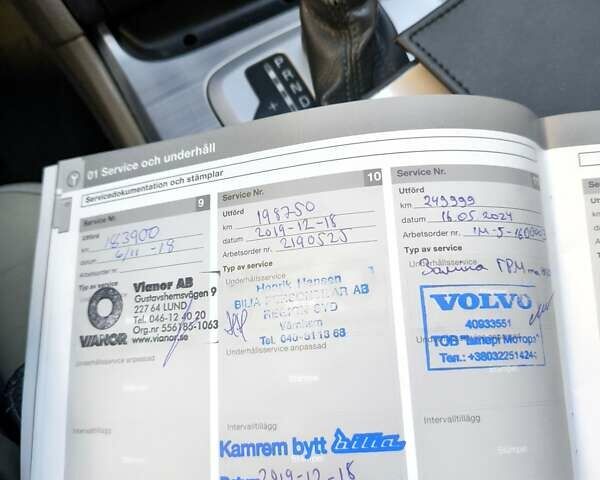 P R N D
+
01 Service och underhåll
Servicedokumentation och stämplar
Service Nr. 9
Utförd
km 183900
datum 6/11 -18
Arbetsorder nr
Typ av service
Vianor AB
Gustavshemsvägen 9
227 64 LUND
Tel. 046-12 40 20
Org.nr 556185-1063
www.vianor.se
VIANOR
Underhållsservice anpassad
Intervalltillägg
Service Nr. 10
Utförd
km 198750
datum 2019-12-18
Arbetsorder nr. 2190525
Typ av service
Underhållsservice
Henrik Hansen
BILIA PERSONBILAR AB
REGION SYD
Värnhem
Underhållsservice anpassad
Stämpel
Intervalltillägg
Kamrem bytt bilia
Datum 2019-12-18
Service Nr.
Utförd
km 249999
datum 16.05.2024
Arbetsorder nr.
Typ av service
Заміна ГРМ
VOLVO
40933551
ТОВ "Імпері Моторс"
Тел.: +3803225142
Underhållsservice anpassad
Intervalltillägg
Stämpel
Service
Utförd
km
datum
Arbetsorder
Typ av